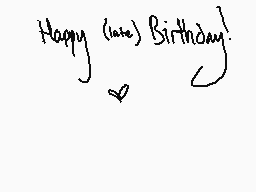 Happy (late) Birthday!